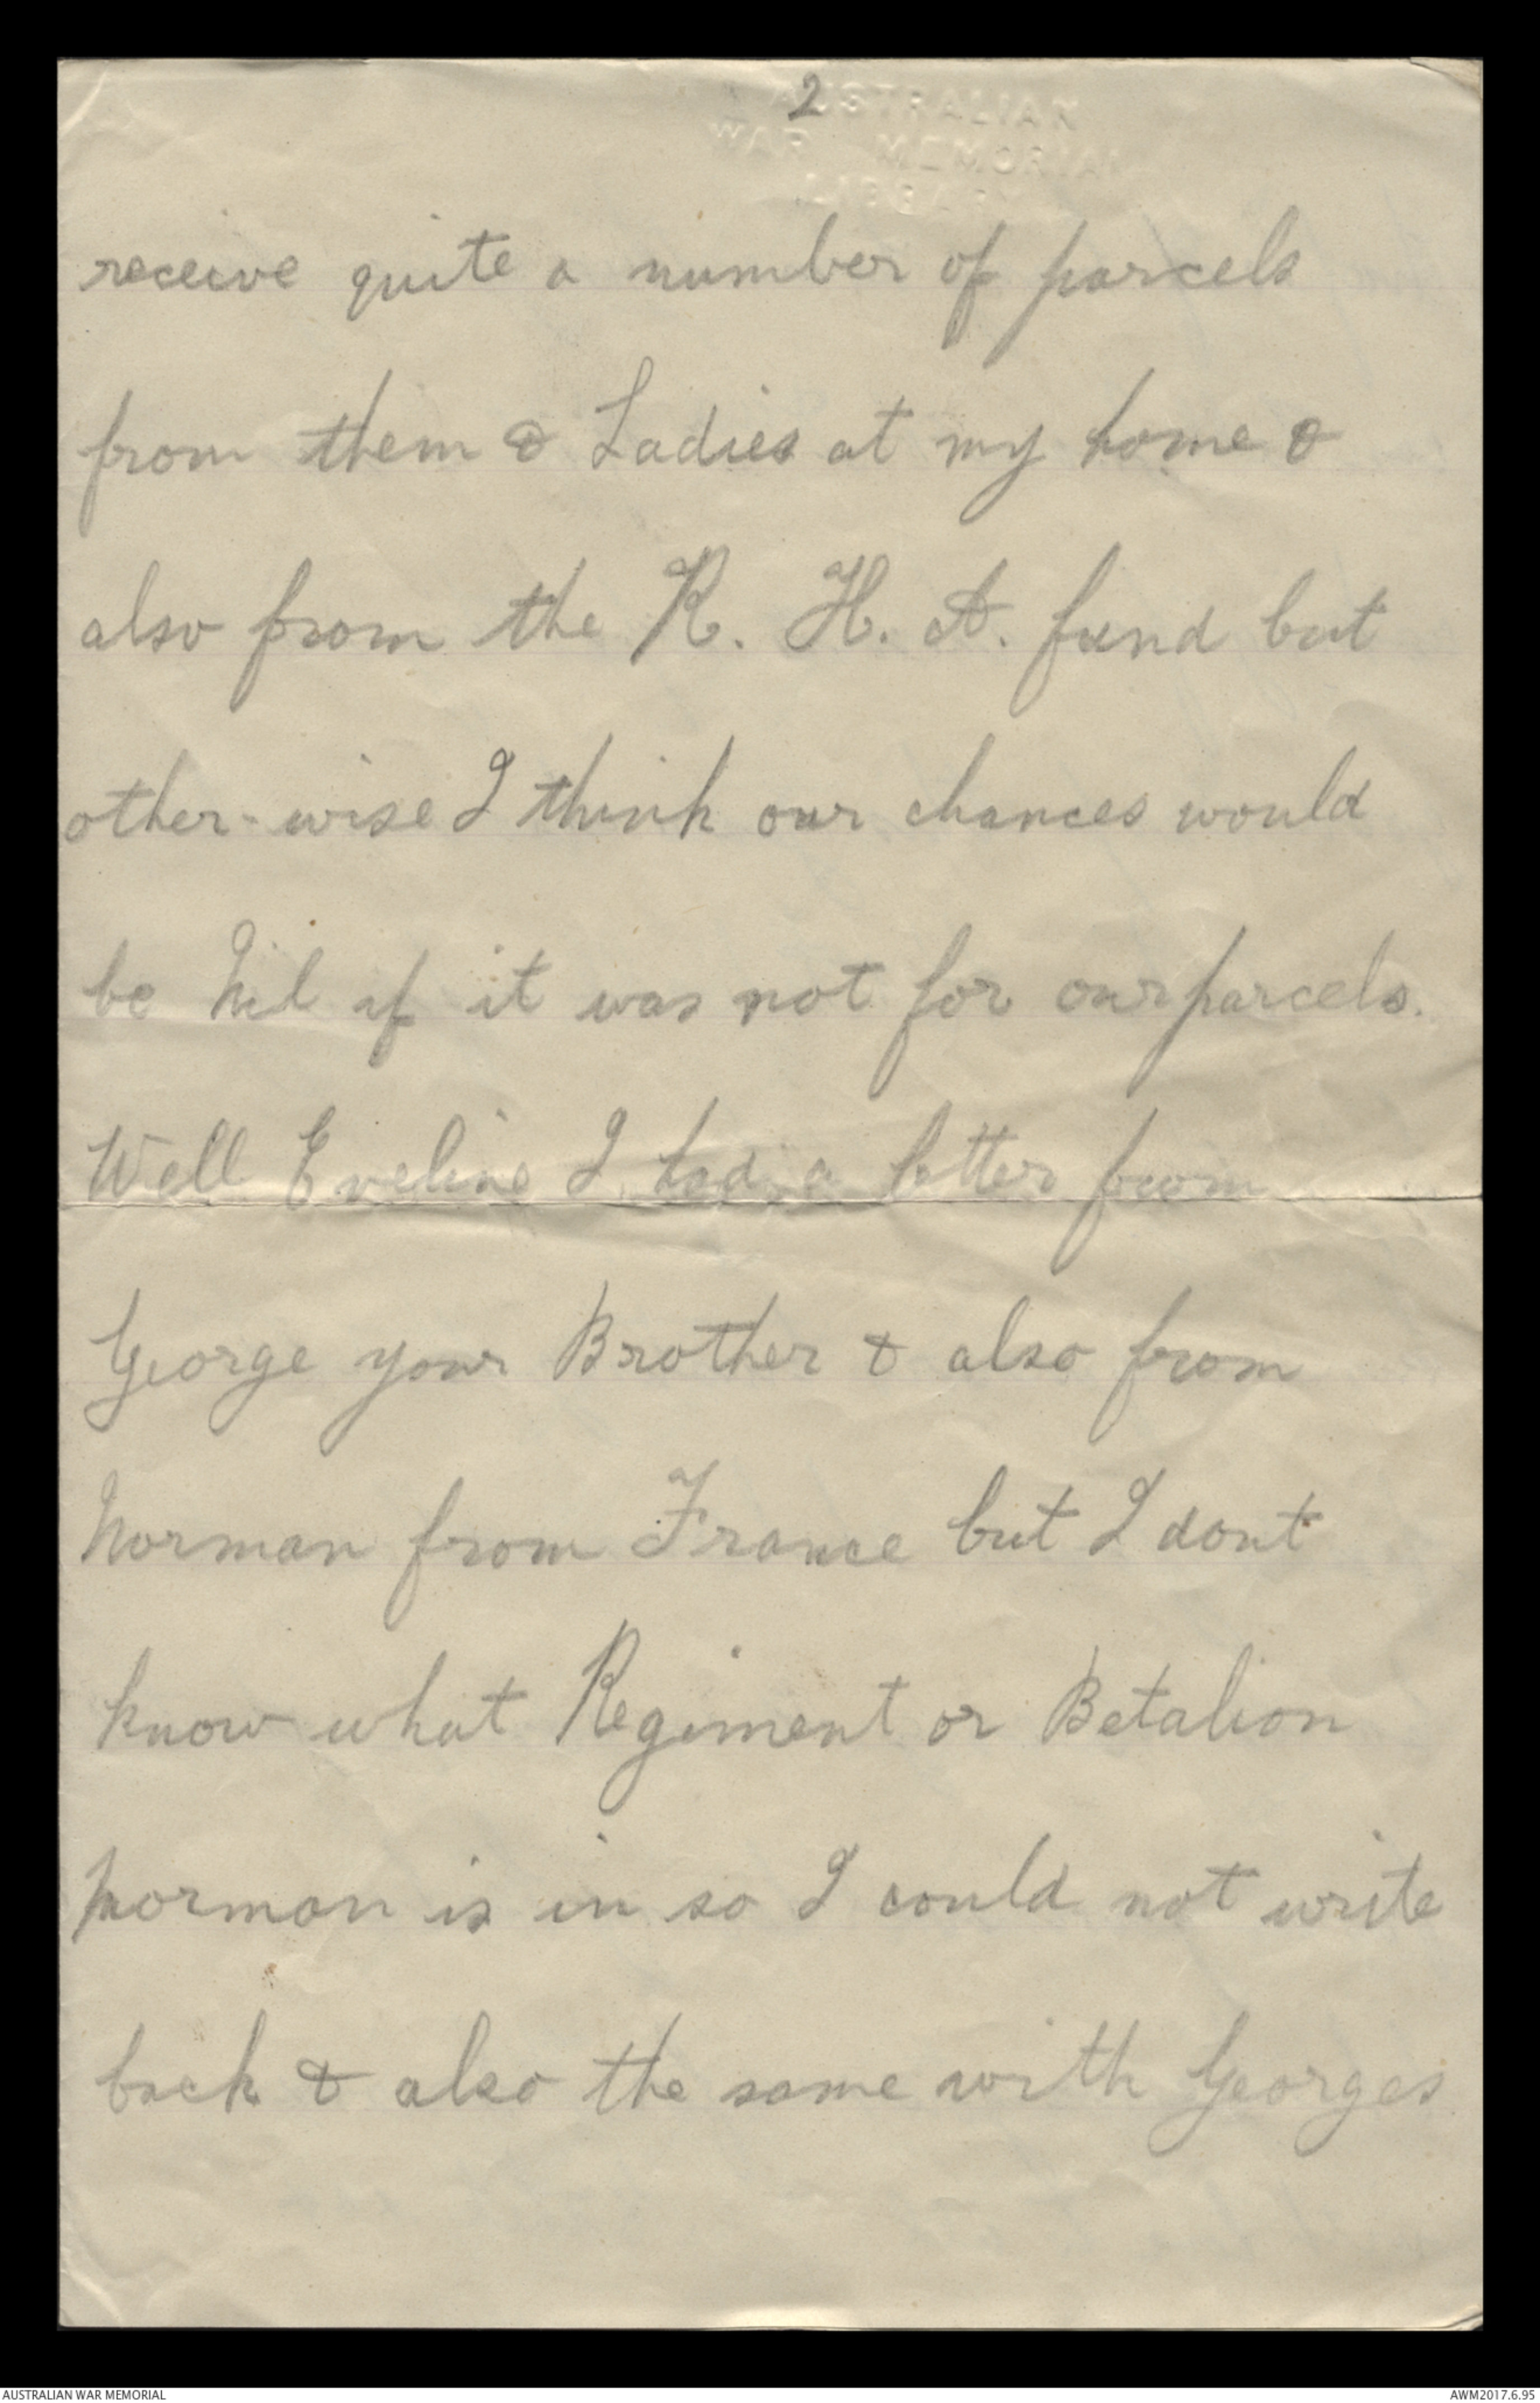 2
AUSTRALIAN
WAR MEMORIAL
LIBRARY
receive quite a number of parcels
from them & Ladies at my home &
also from the R. H. A. fund but
other-wise I think our chances would
be Nil if it was not for our parcels.
Well Eveline I had a letter from
George your Brother & also from
Norman from France but I dont
know what Regiment or Betalion
Norman is in so I could not write
back & also the same with Georges
AUSTRALIAN WAR MEMORIAL
AWM2017.6.95